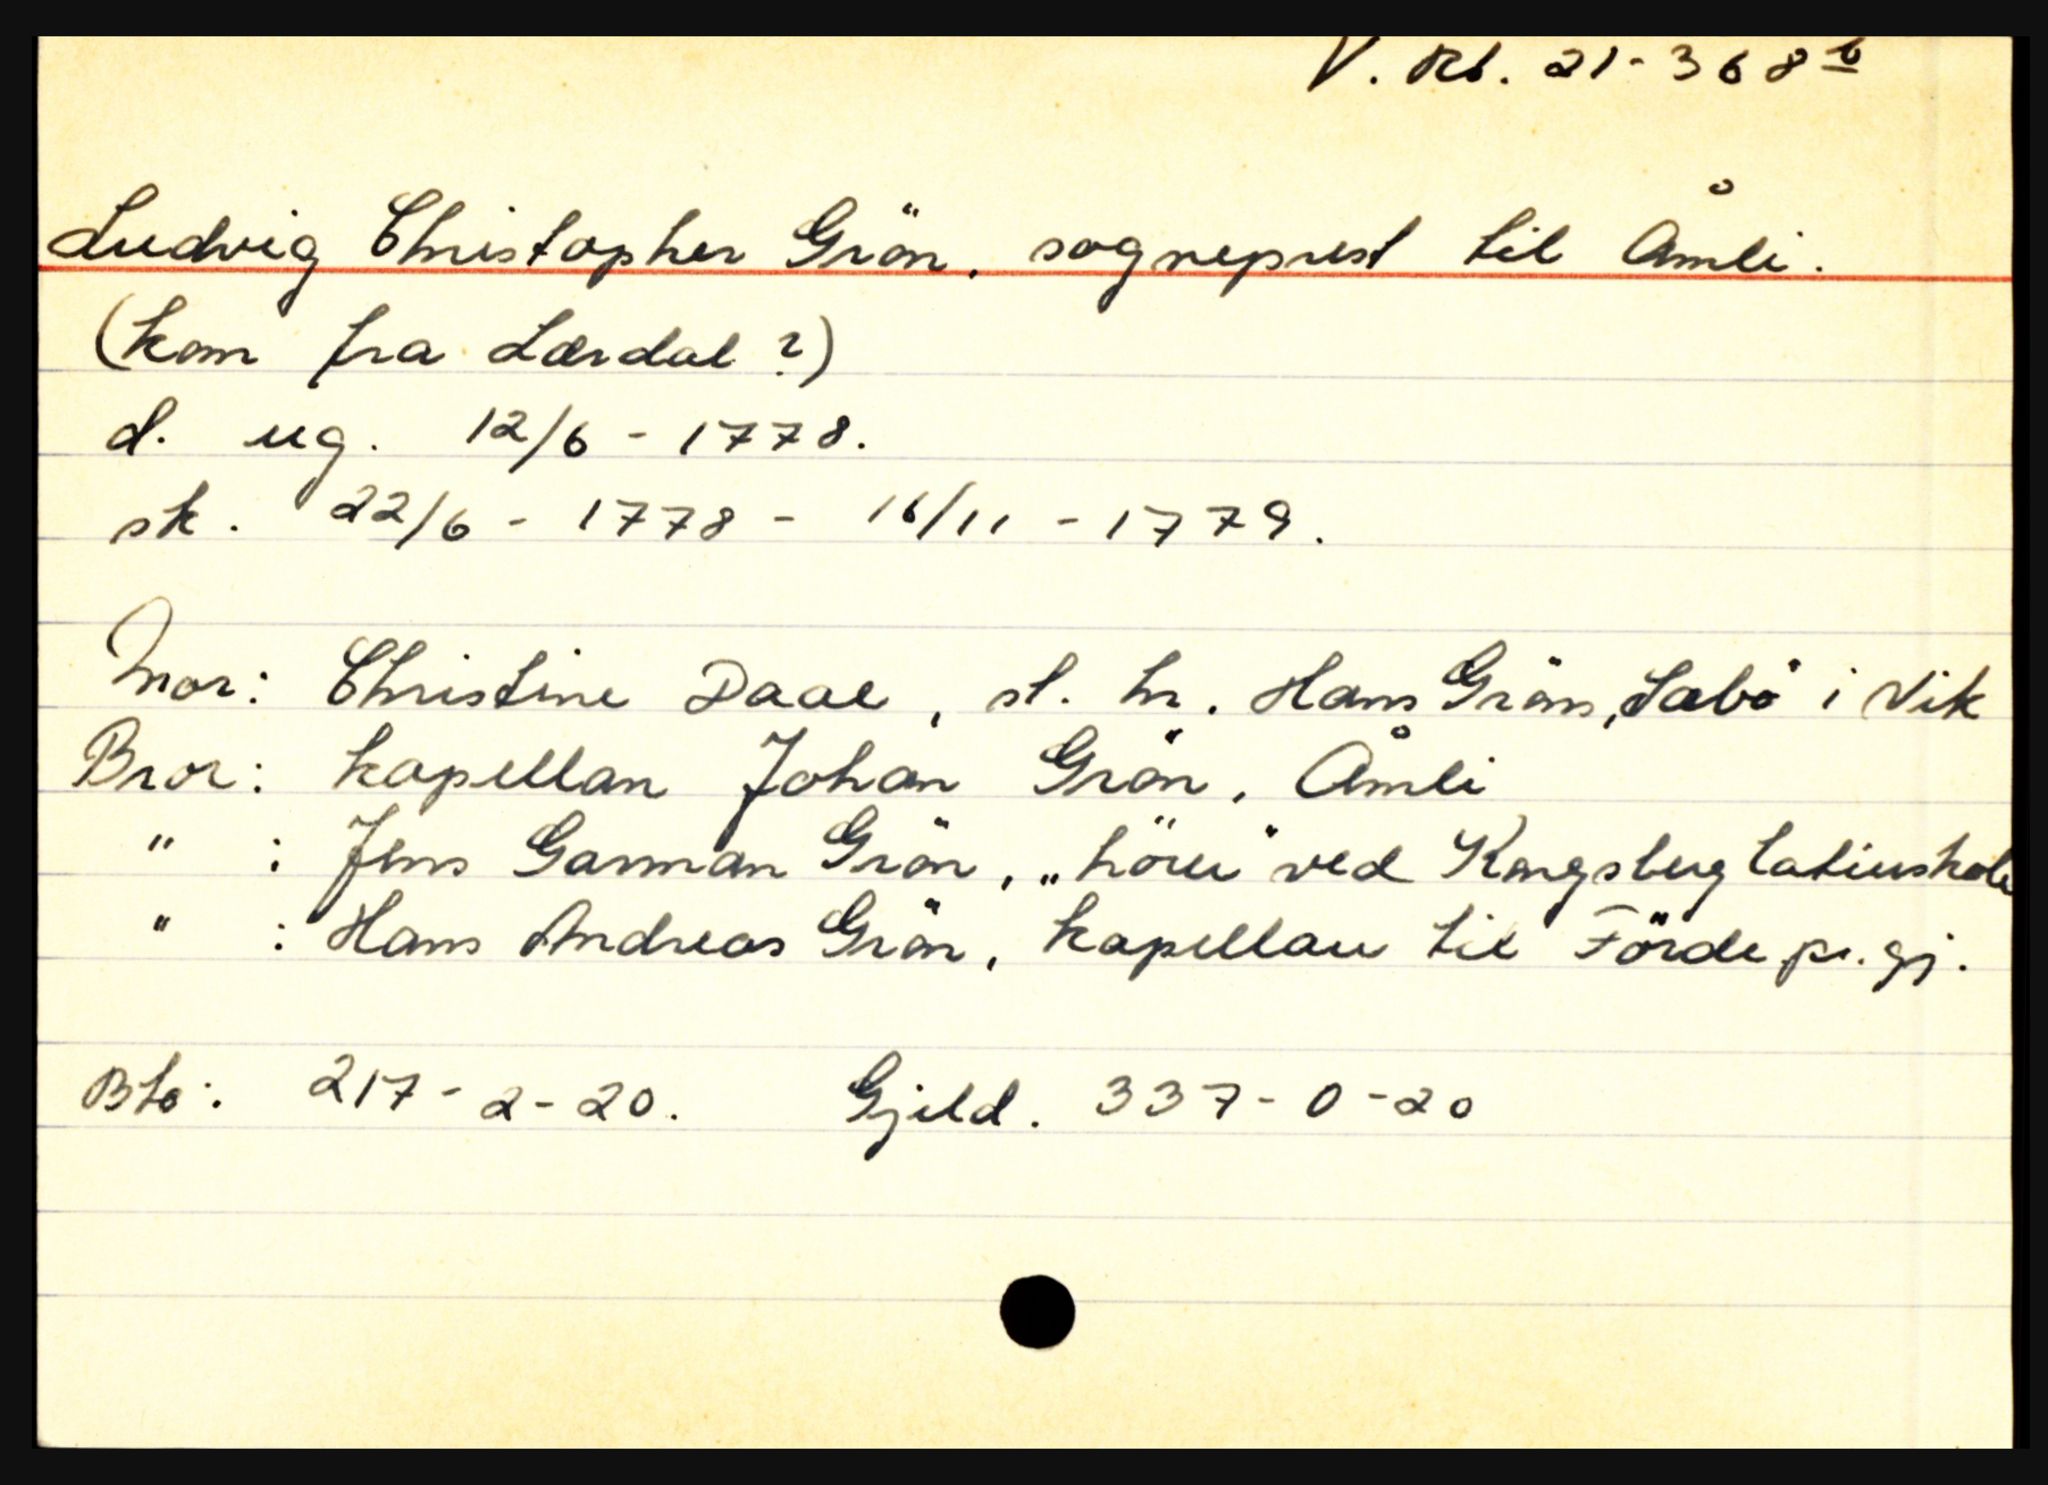 V. Rb. 21-368 b
Ludvig Christopher Grön, sogneprest til Åmli.
(kom fra Lærdal?)
d. ug. 12/6 - 1778.
sk. 22/6 - 1778 - 16/11 - 1779.
Mor: Christine Daae, sl. hr. Hans Gröns, Sæbö i Vik
Bror: kapellan Johan Grön, Åmli
" : Jens Garman Grön, „hörer" ved Kongsberg latinskole
" : Hans Andreas Grön, kapellan til Förde pr.gj.
Bto: 217-2-20. Gjeld. 337-0-20